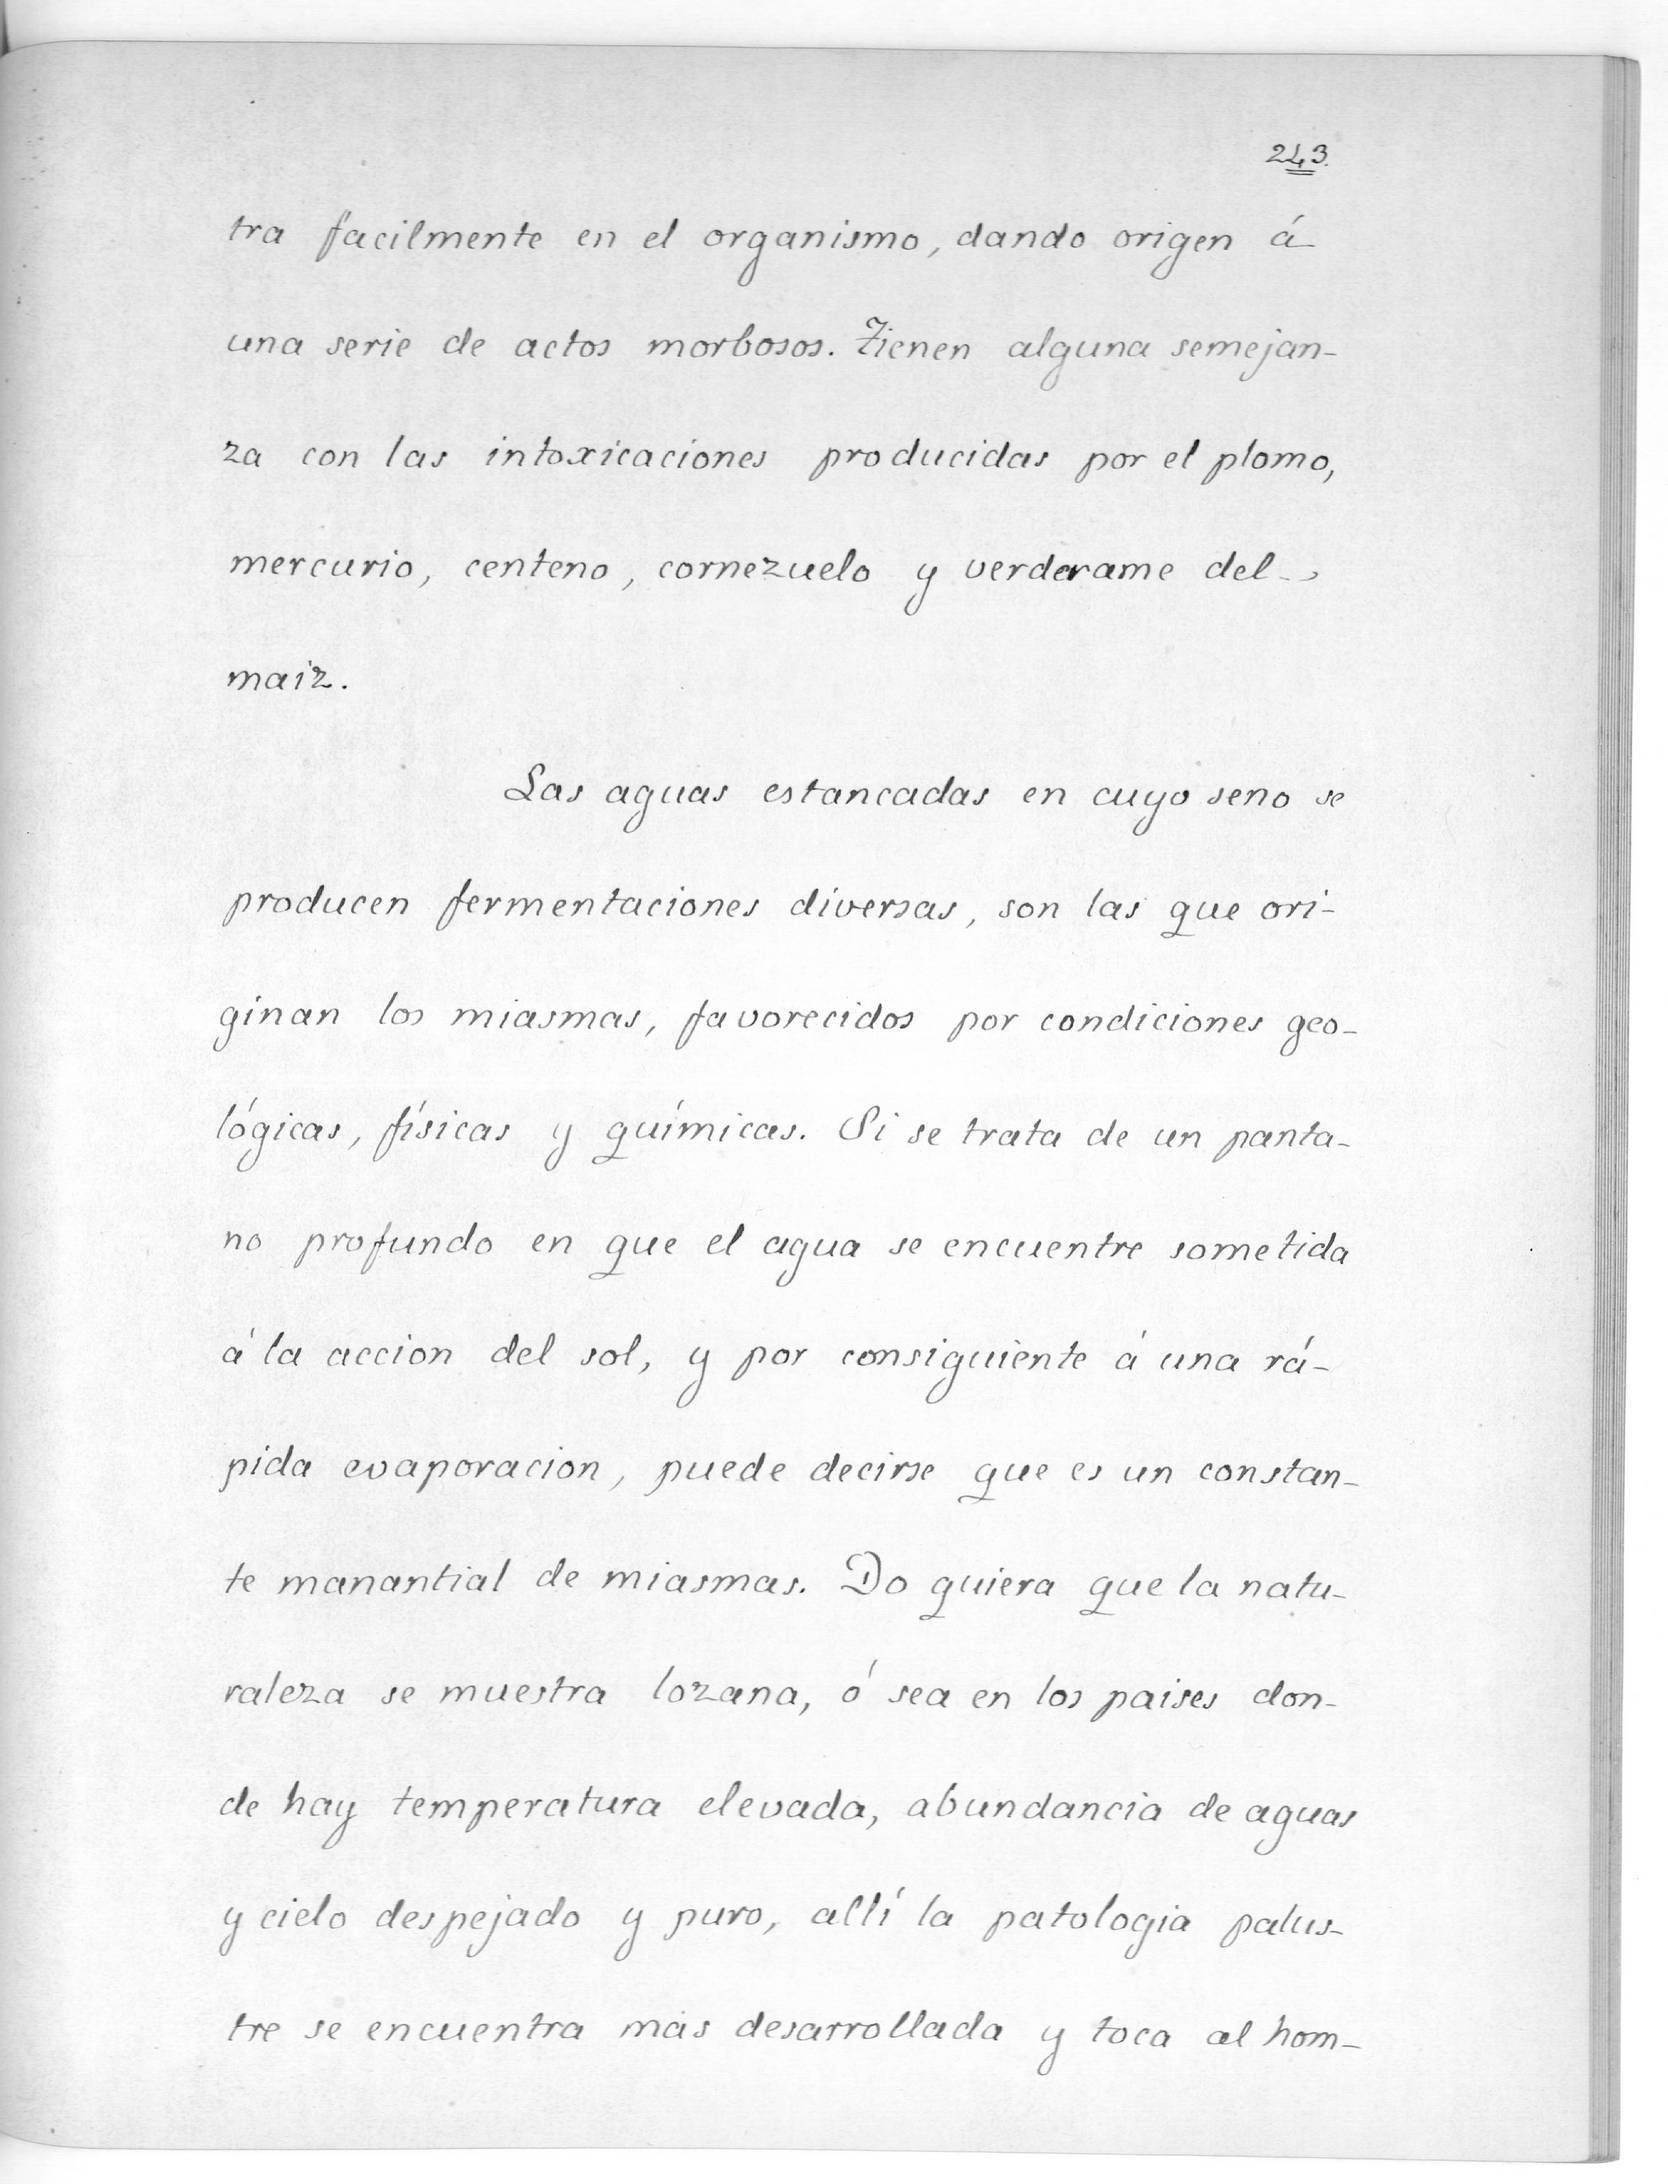 243.
tra facilmente en el organismo, dando origen á
una serie de actos morbosos. Tienen alguna semejan-
za con las intoxicaciones producidas por el plomo,
mercurio, centeno, cornezuelo y verderame del
maiz.
Las aguas estancadas en cuyo seno se
producen fermentaciones diversas, son las que ori-
ginan los miasmas, favorecidos por condiciones geo-
lógicas, físicas y químicas. Si se trata de un panta-
no profundo en que el agua se encuentre sometida
á la accion del sol, y por consiguiente á una rá-
pida evaporacion, puede decirse que es un constan-
te manantial de miasmas. Do quiera que la natu-
raleza se muestra lozana, ó sea en los paises don-
de hay temperatura elevada, abundancia de aguas
y cielo despejado y puro, allí la patologia palus-
tre se encuentra mas desarrollada y toca al hom-